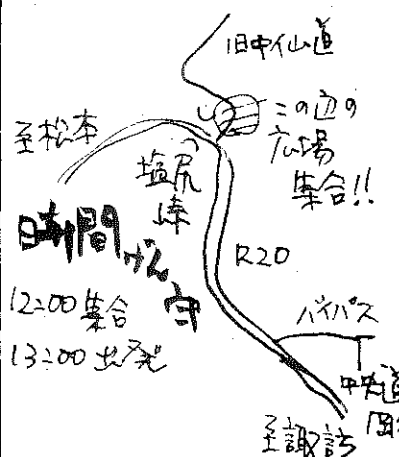 旧中仙道
この辺の
広場
集合!!
至松本
塩尻
峠
時間げん守
R20
12:00 集合
13:00 出発
バイパス
中央道
至諏訪